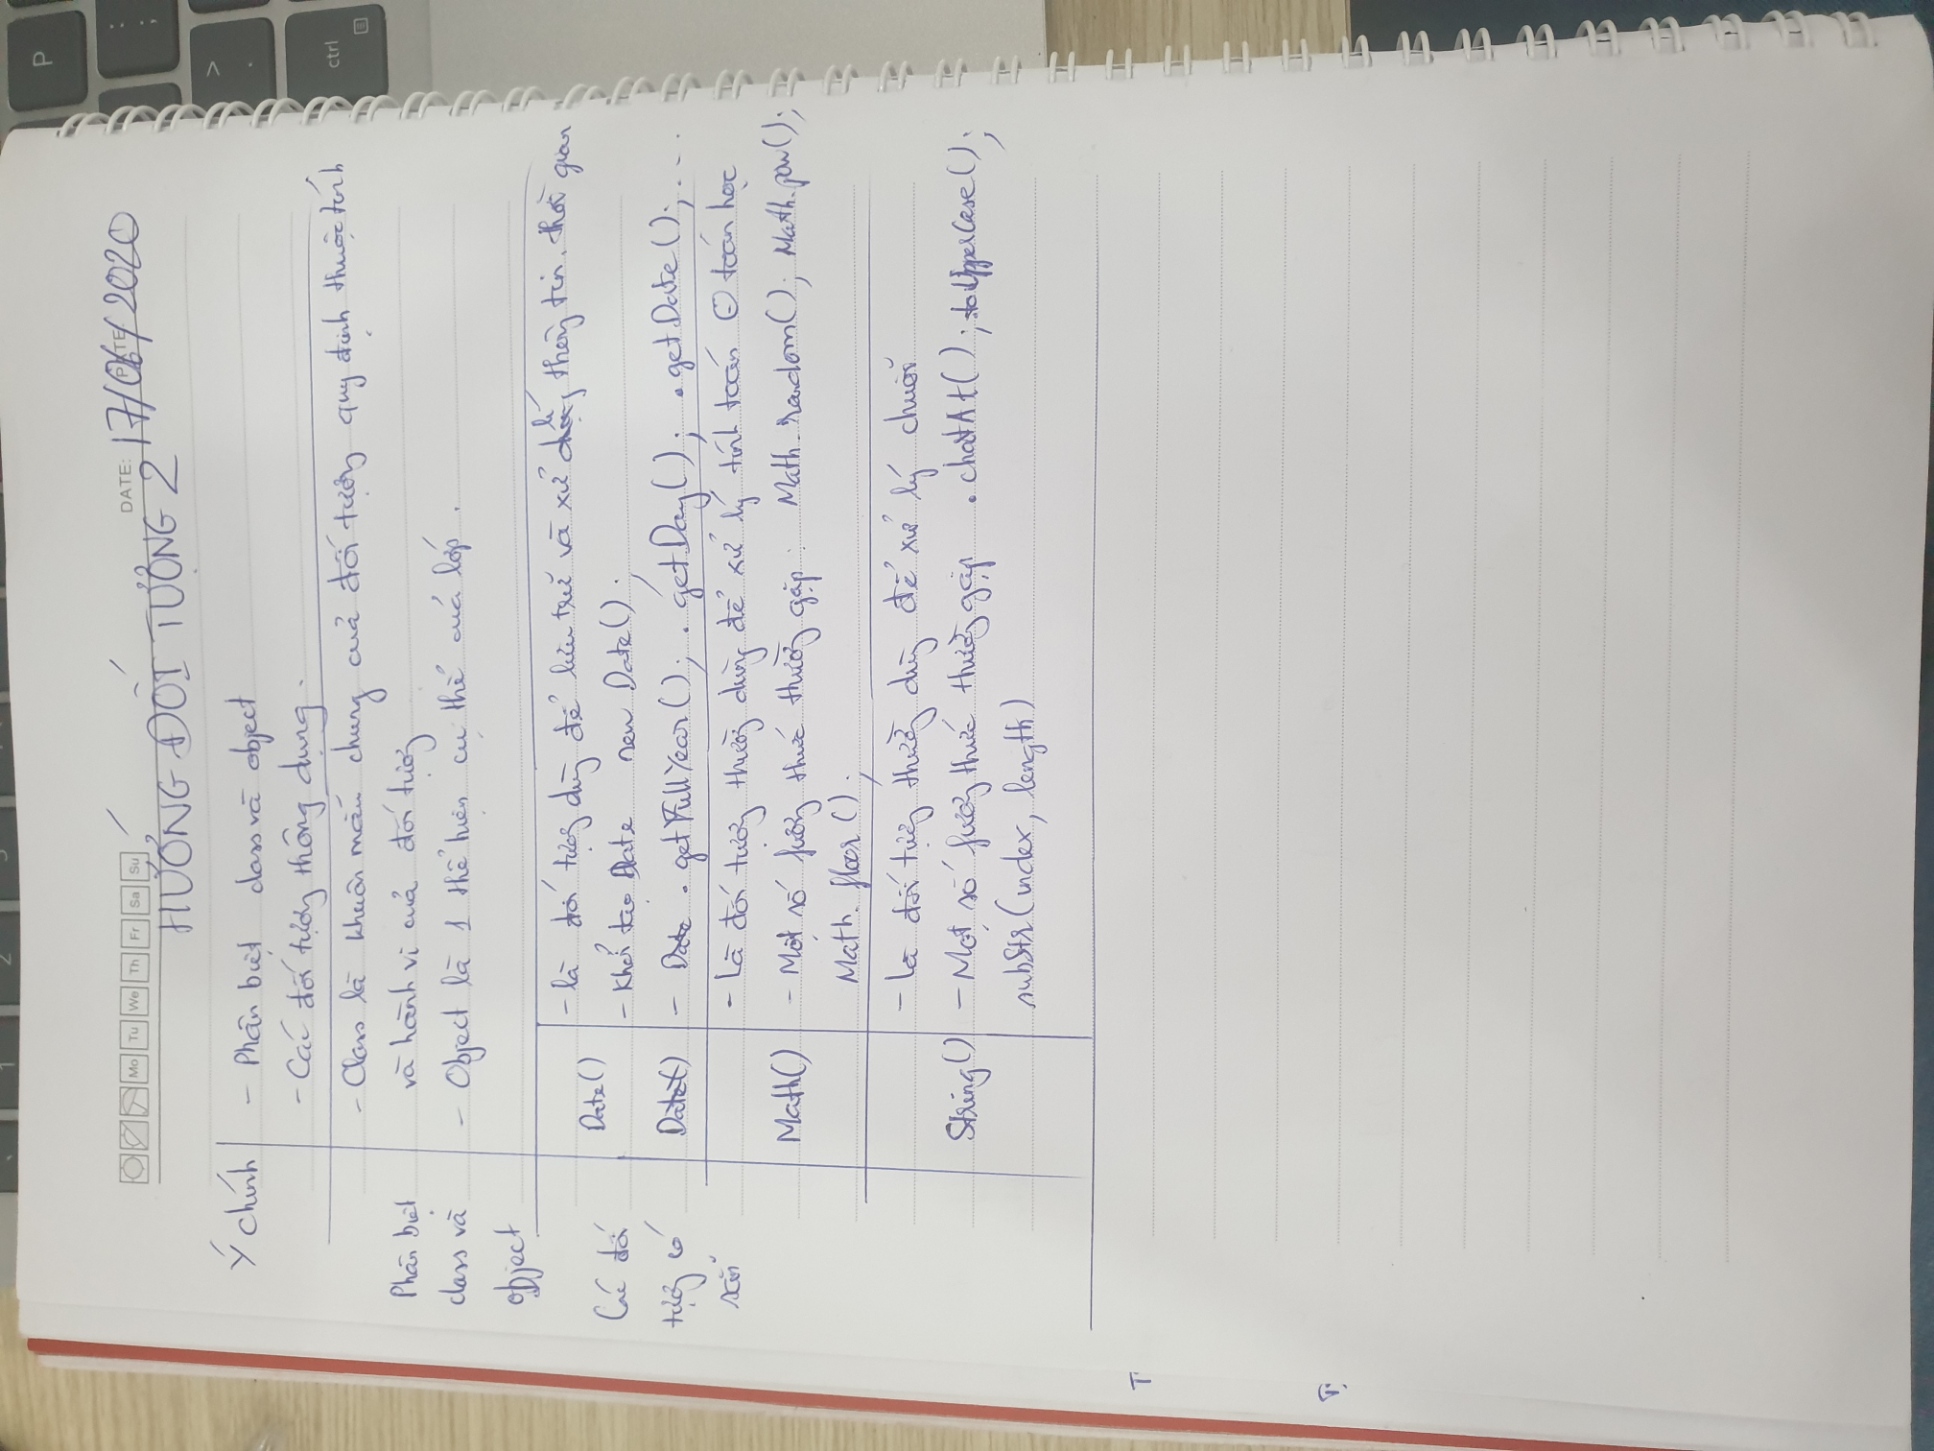 Mo Tu We Th Fr Sa Su
DATE: 17/06/2020
HƯỚNG ĐỐI TƯỢNG 2
Ý chính
- Phân biệt class và object
- Các đối tượng thông dụng.
Phân biệt
class và
object
- Class là khuôn mẫu chung của đối tượng quy định thuộc tính
và hành vi của đối tượng
- Object là 1 thể hiện cụ thể của lớp.
Các đối
tượng có
sẵn
Date()
- là đối tượng dùng để lưu trữ và xử lí thông tin. thời gian
- Khởi tạo Date new Date();
Date()
- Date .getFullYear(); .getDay(); .getDate(); ...
Math()
- Là đối tượng thường dùng để xử lý tính toán toán học
- Một số fương thức thường gặp: Math.random(); Math.pow();
Math.floor();
String()
- Là đối tượng thường dùng để xử lý chuỗi
- Một số fương thức thường gặp .chatAt(); .toUpperCase();
subStr(index, length)
T
T
P
ctrl